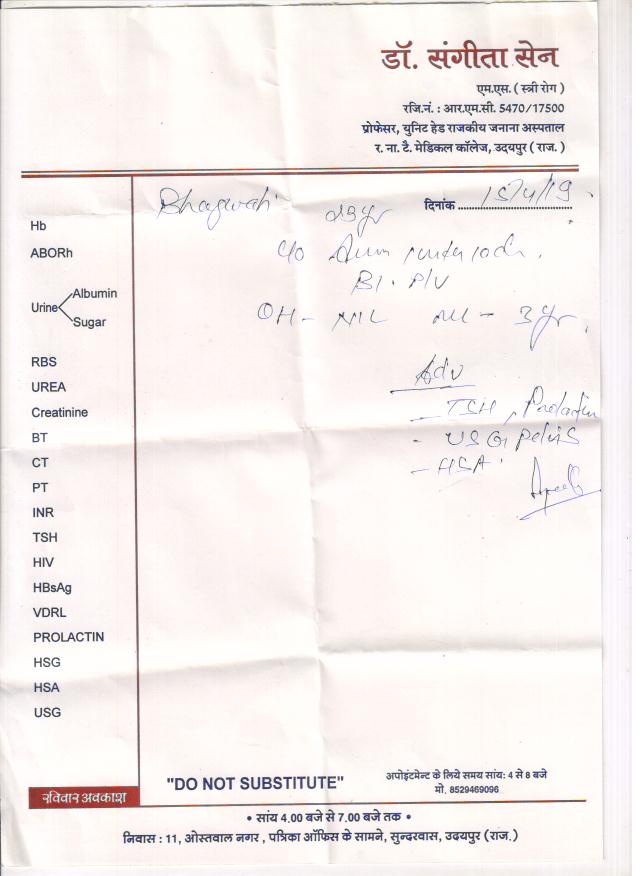 डॉ. संगीता सेन
एम.एस. ( स्त्री रोग )
रजि.नं. : आर.एम.सी. 5470/17500
प्रोफेसर, युनिट हेड राजकीय जनाना अस्पताल
र. ना. टै. मेडिकल कॉलेज, उदयपुर ( राज. )
Bhagwati 29 yr दिनांक 15/4/19
Hb
ABORh
c/o
Urine Albumin
Sugar
BI. P/V
OH - NIL ML - 3 yr,
RBS
UREA
Creatinine
BT
CT
PT
INR
TSH
HIV
HBsAg
VDRL
PROLACTIN
HSG
HSA
USG
Adv
- TSH, Prolactin
- USG pelvis
- HSA
"DO NOT SUBSTITUTE"
अपोइंटमेन्ट के लिये समय सायं: 4 से 8 बजे
मो. 8529469096
रविवार अवकाश
• सांय 4.00 बजे से 7.00 बजे तक •
निवास : 11, ओस्तवाल नगर , पत्रिका ऑफिस के सामने, सुन्दरवास, उदयपुर (राज.)